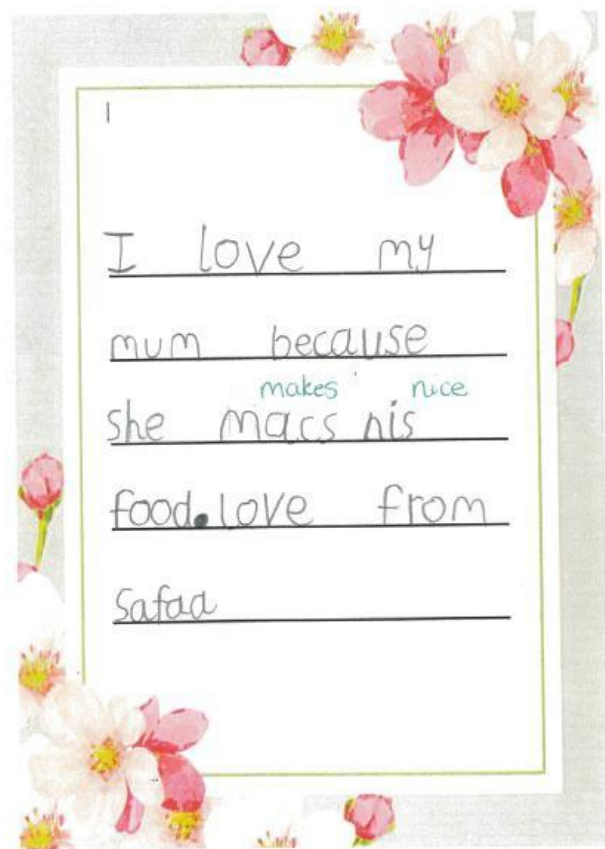 I love my
mum because
makes nice
she macs nis
food. love from
safaa